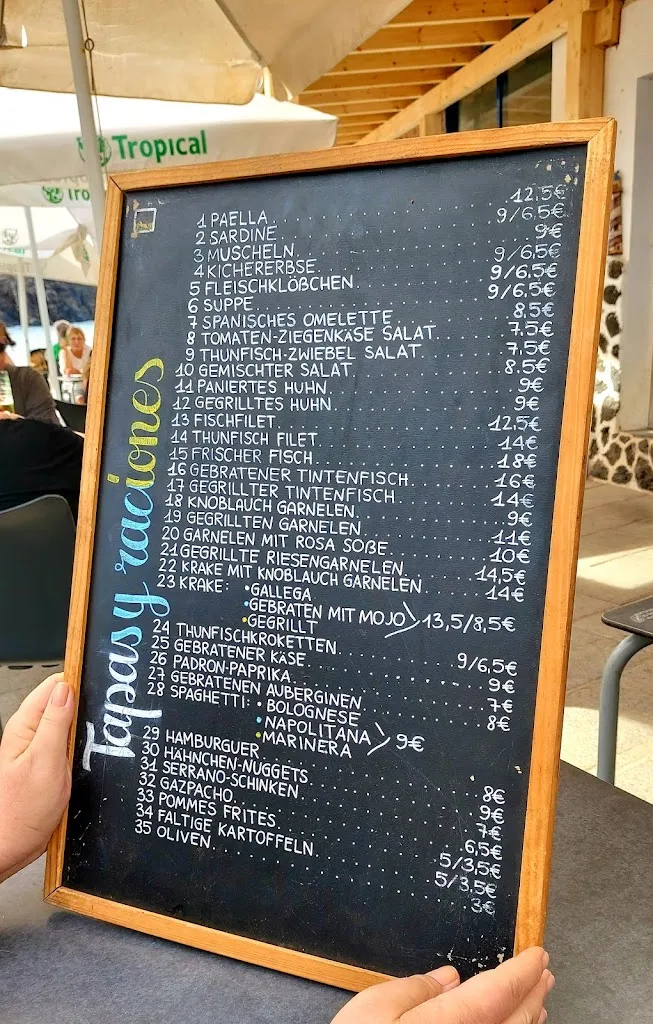 Tropical
Tro
Tapas y raciones
1 PAELLA 12,5€
2 SARDINE 9/6,5€
3 MUSCHELN 9€
4 KICHERERBSE 9/6,5€
5 FLEISCHKLÖBCHEN 9/6,5€
6 SUPPE 9/6,5€
7 SPANISCHES OMELETTE 8,5€
8 TOMATEN-ZIEGENKÄSE SALAT 7,5€
9 THUNFISCH-ZWIEBEL SALAT 7,5€
10 GEMISCHTER SALAT 8,5€
11 PANIERTES HUHN 9€
12 GEGRILLTES HUHN 9€
13 FISCHFILET 12,5€
14 THUNFISCH FILET 14€
15 FRISCHER FISCH 18€
16 GEBRATENER TINTENFISCH 16€
17 GEGRILLTER TINTENFISCH 14€
18 KNOBLAUCH GARNELEN 9€
19 GEGRILLTEN GARNELEN 11€
20 GARNELEN MIT ROSA SOßE 10€
21 GEGRILLTE RIESENGARNELEN 14,5€
22 KRAKE MIT KNOBLAUCH GARNELEN 14€
23 KRAKE: • GALLEGA
• GEBRATEN MIT MOJO 13,5/8,5€
• GEGRILLT
24 THUNFISCHKROKETTEN 9/6,5€
25 GEBRATENER KÄSE 9€
26 PADRON-PAPRIKA 7€
27 GEBRATENEN AUBERGINEN 8€
28 SPAGHETTI: • BOLOGNESE
• NAPOLITANA 9€
• MARINERA
29 HAMBURGUER 8€
30 HÄHNCHEN-NUGGETS 9€
31 SERRANO-SCHINKEN 7€
32 GAZPACHO 6,5€
33 POMMES FRITES 5/3,5€
34 FALTIGE KARTOFFELN 5/3,5€
35 OLIVEN 3€